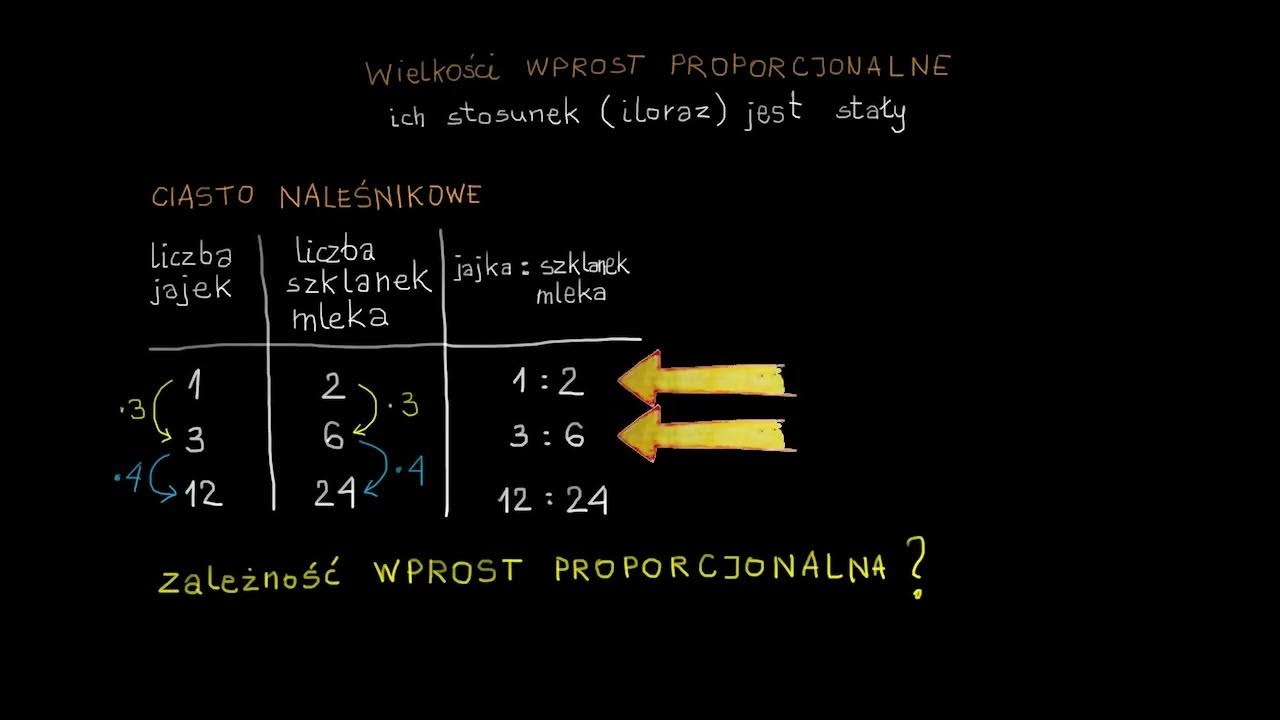 Wielkości WPROST PROPORCJONALNE
ich stosunek (iloraz) jest stały
CIASTO NALEŚNIKOWE
liczba jajek
liczba szklanek mleka
jajka : szklanek mleka
1 2 1 : 2
·3 ·3
3 6 3 : 6
·4 ·4
12 24 12 : 24
zależność WPROST PROPORCJONALNA?